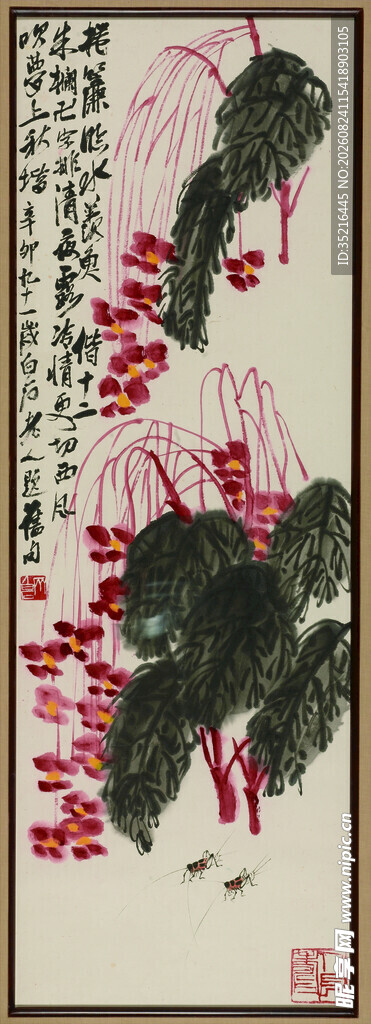 捲簾臨水羨魚偕十二
朱欄卍字排清夜露冷情更切西風
吹夢上秋堦辛卯九十一歲白石老人題舊句
ID:35216445 NO:20260824115418903105
昵享网 www.nipic.cn